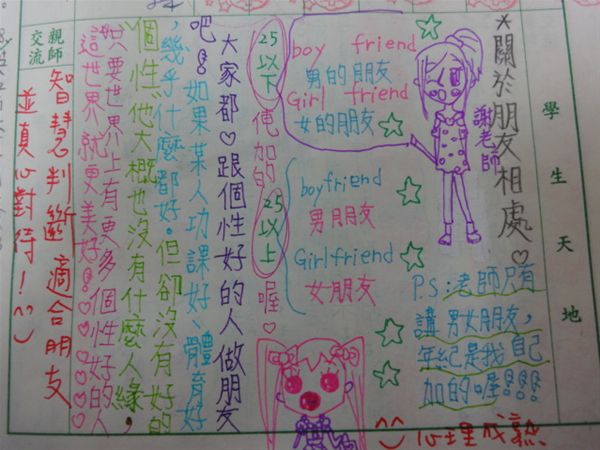 學生天地
*關於朋友相處♡
謝老師
boy friend
男的朋友
Girl friend
女的朋友
25以下
boyfriend
男朋友
Girlfriend
女朋友
25以上
P.S:老師只有
講男女朋友,
年紀是找自己
加的喔!!!
^^心理成熟
便加的 喔♡
大家都♡跟個性好的人做朋友
吧!如果某人功課好、體育好
,幾乎什麼都好。但卻沒有好的
"個性"他大概也沒有什麼人緣,
只要世界上有更多個性好的人
這世界就更美好!♡♡♡♡♡
親師交流
智慧判斷適合朋友
並真心對待!^^